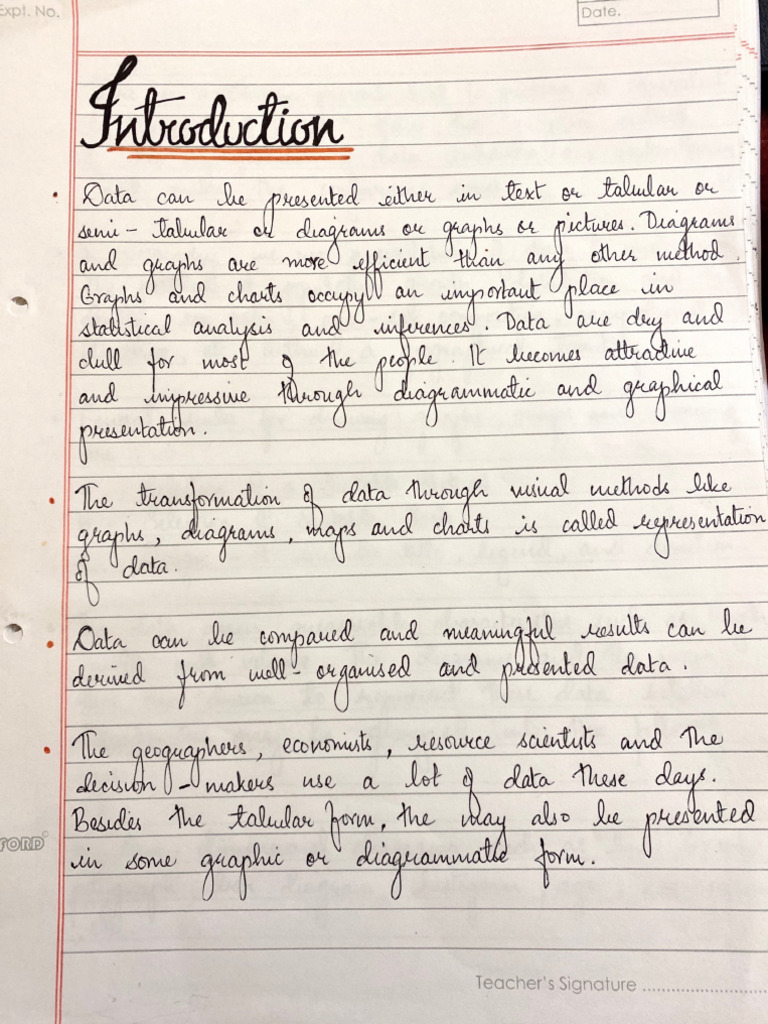 Expt. No.
Date.
Introduction
Data can be presented either in text or tabular or
semi - tabular or diagrams or graphs or pictures. Diagrams
and graphs are more efficient than any other method.
Graphs and charts occupy an important place in
statistical analysis and inferences. Data are dry and
dull for most of the people. It becomes attractive
and impressive through diagrammatic and graphical
presentation.
The transformation of data through visual methods like
graphs, diagrams, maps and charts is called representation
of data.
Data can be compared and meaningful results can be
derived from well - organised and presented data.
The geographers, economists, resource scientists and the
decision - makers use a lot of data these days.
Besides the tabular form, the may also be presented
in some graphic or diagrammatic form.
FORD
Teacher's Signature ....................